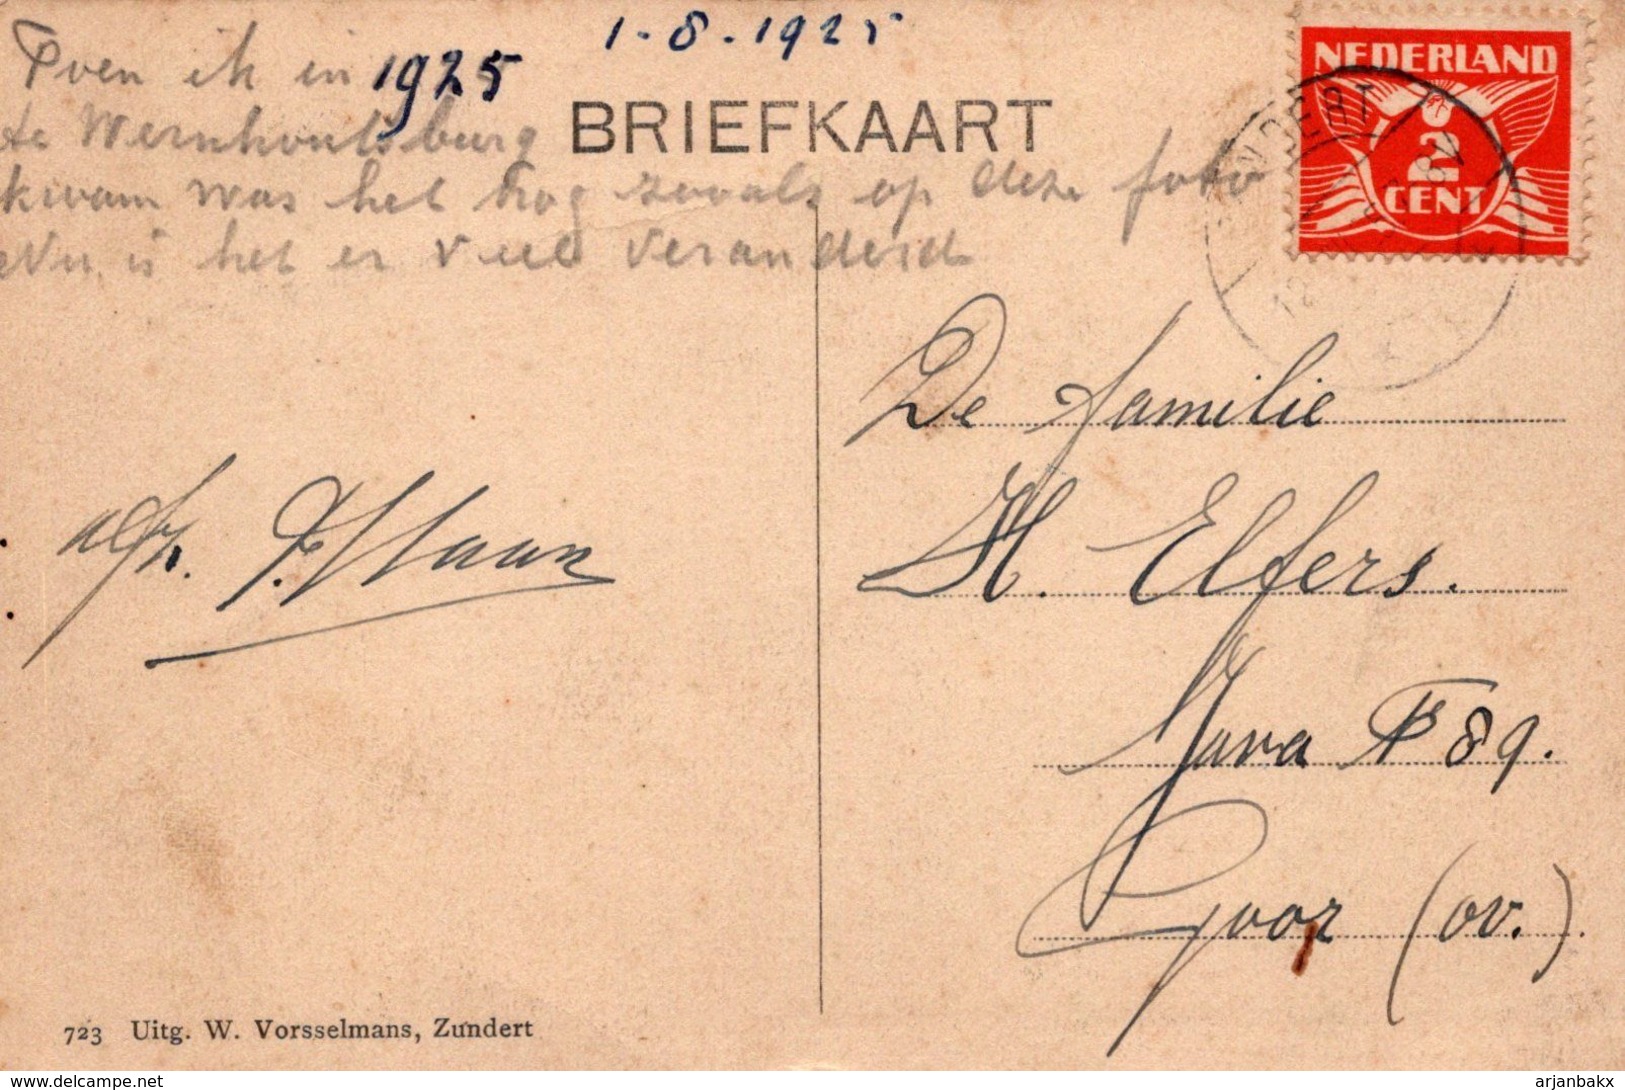 1-8-1925
Toen ik in 1925
te Wernhoutsburg
kwam was het nog zooals op deze foto
Nu is het er veel veranderd
BRIEFKAART
NEDERLAND
2
CENT
ZUNDERT
De familie
H. Elfers.
Java 89.
Goor (ov.)
afz.
723 Uitg. W. Vorsselmans, Zundert
www.delcampe.net
arjanbakx